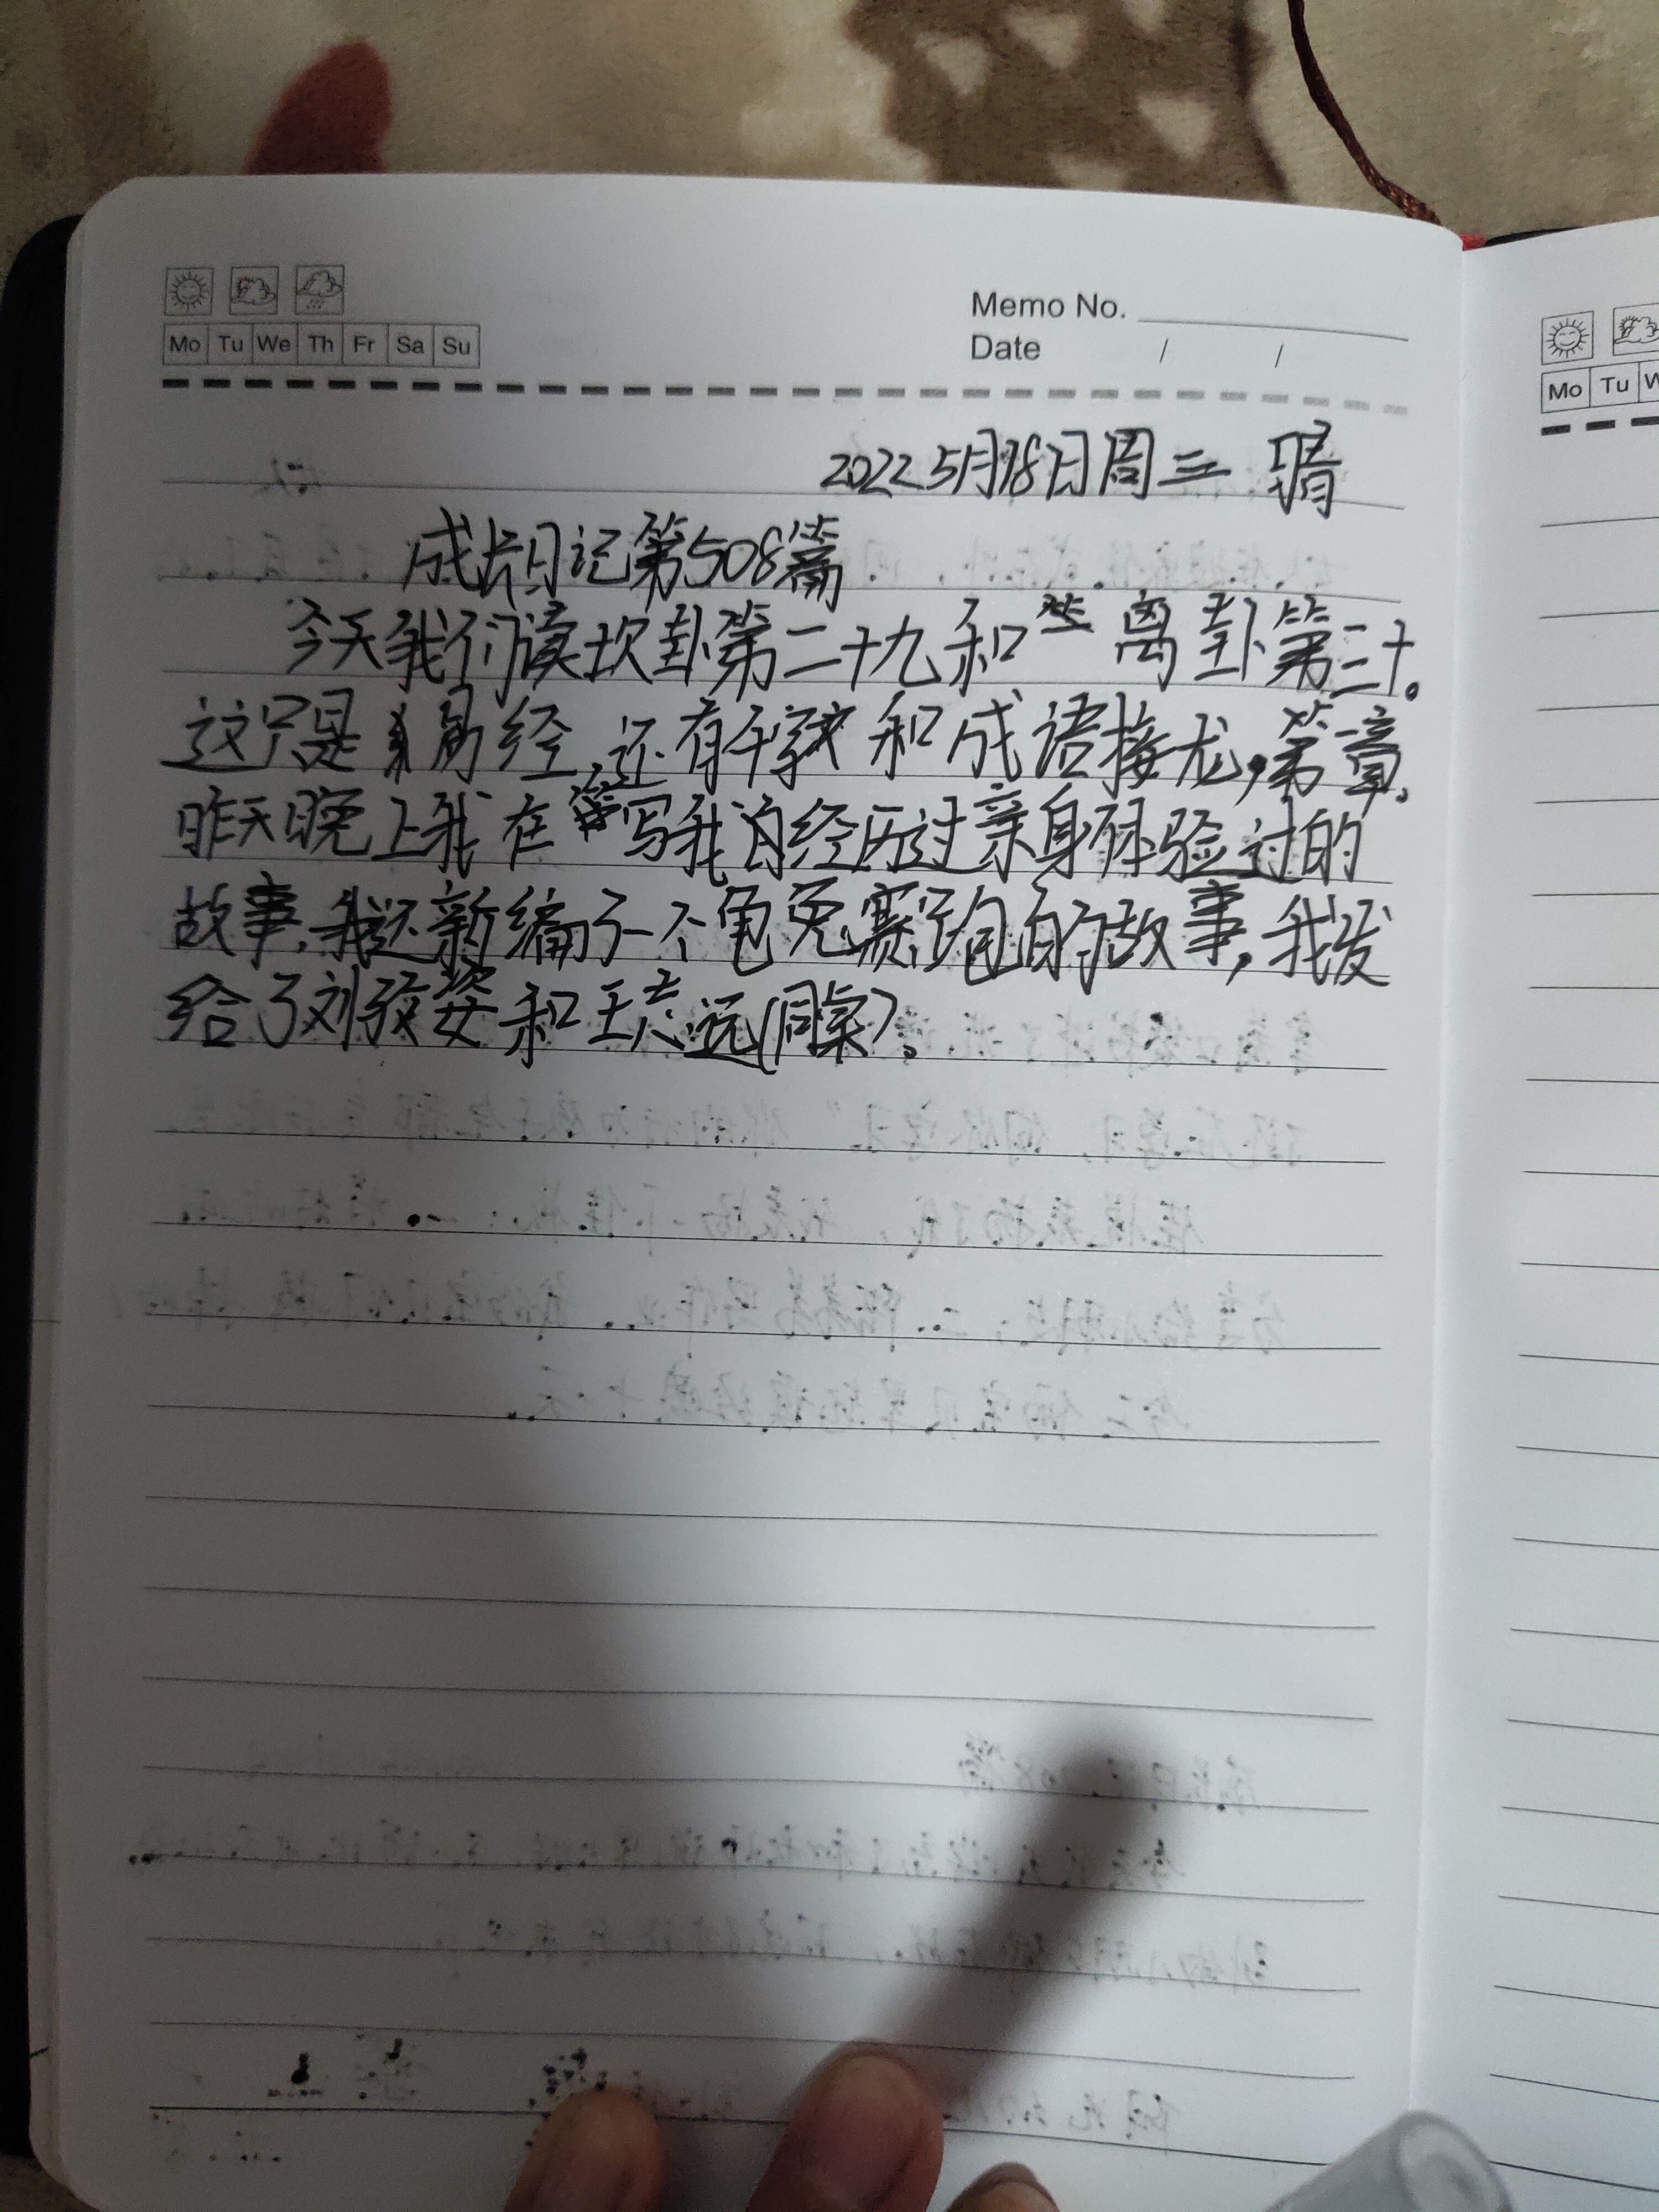 Memo No.
Mo Tu We Th Fr Sa Su
Date / /
Mo Tu W
2022 5月18日周三 晴
成长日记第508篇
今天我们读坎卦第二十九和 离卦第三十。
这只是 易经,还有千字文和成语接龙,第 章。
昨天晚上我在 写我自经历过亲身体验过的
故事,我还新编了一个龟兔赛跑的故事,我发
给了刘 姿和王志远(同桌)。